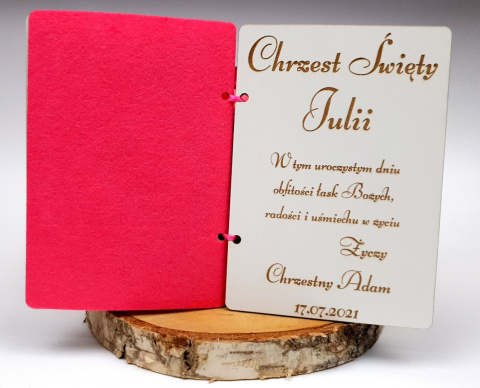 Chrzest Święty
Julii
W tym uroczystym dniu
obfitości łask Bożych,
radości i uśmiechu w życiu
Życzy
Chrzestny Adam
17.07.2021